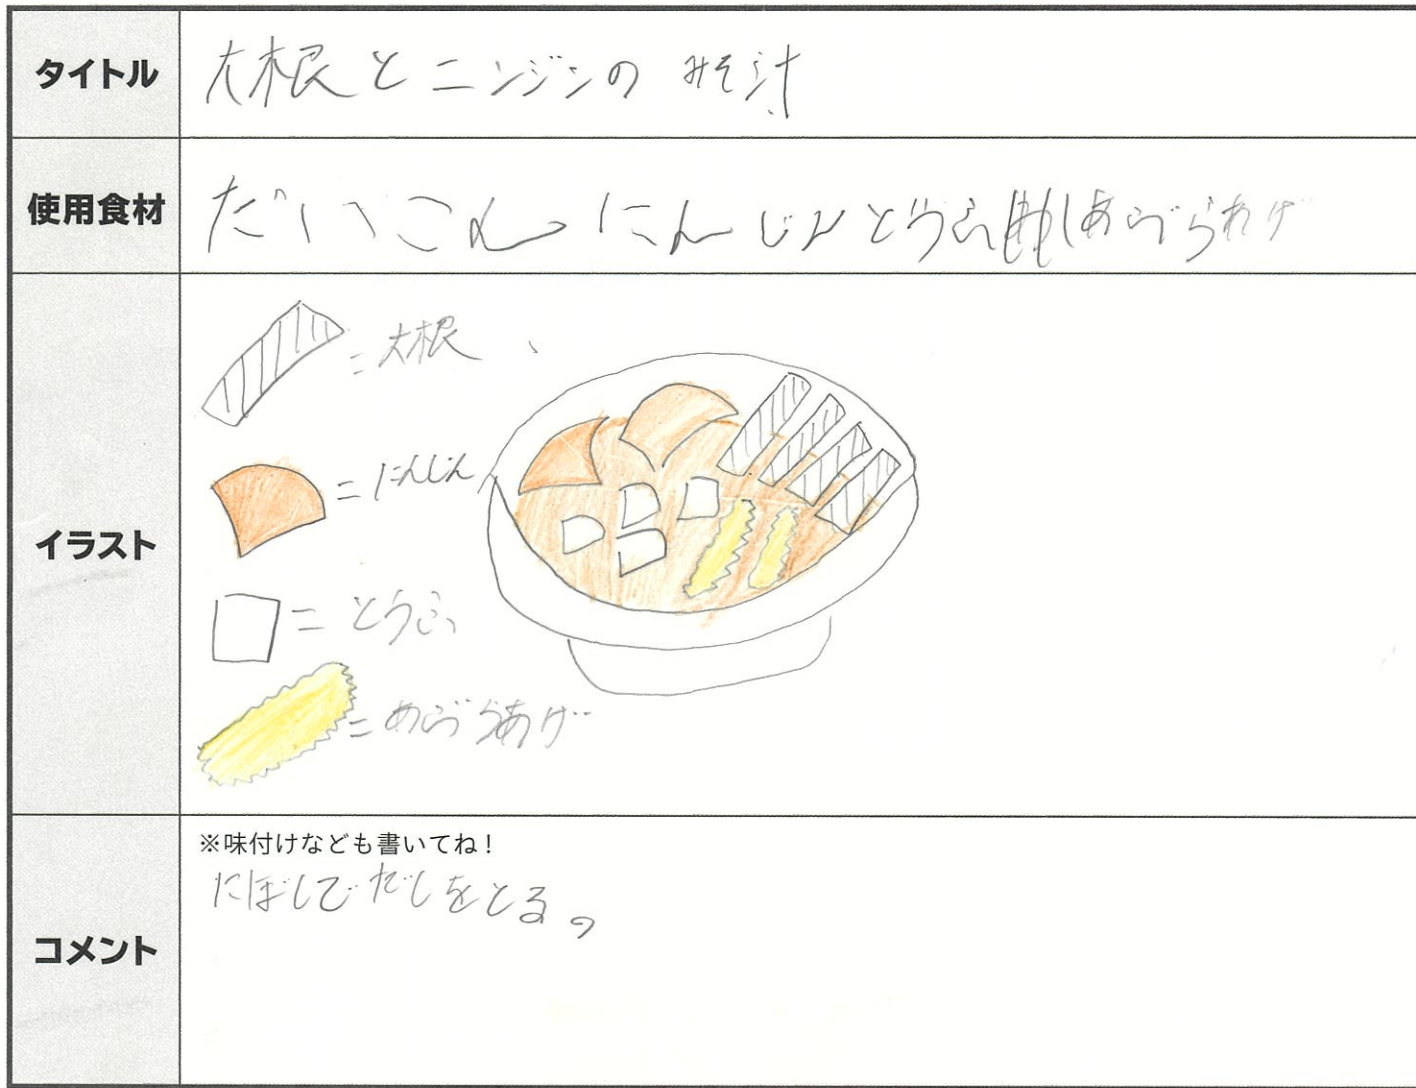 タイトル
大根とニンジンの みそ汁
使用食材
だいこん にんじん とうふ あぶらあげ
イラスト
=大根
=にんじん
=とうふ
=あぶらあげ
コメント
※味付けなども書いてね!
にぼしでだしをとる。